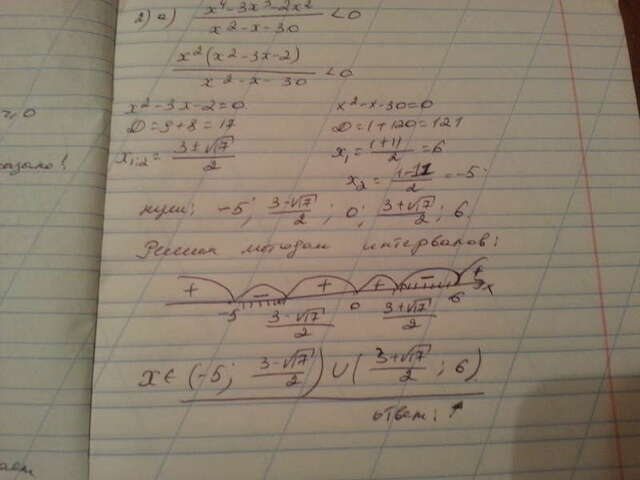 2) a) (x⁴-3x³-2x²)/(x²-x-30) <0
(x²(x²-3x-2))/(x²-x-30) <0
x²-3x-2=0 x²-x-30=0
D=9+8=17 D=1+120=121
x₁;₂= (3±√17)/2 x₁= (1+11)/2 =6
x₂= (1-11)/2 =-5
нули: -5; (3-√17)/2; 0; (3+√17)/2; 6
Решим методом интервалов:
+ - + + - +
-5 (3-√17)/2 0 (3+√17)/2 6 x
x∈ (-5; (3-√17)/2) ∪ ((3+√17)/2; 6)
ответ: ↗